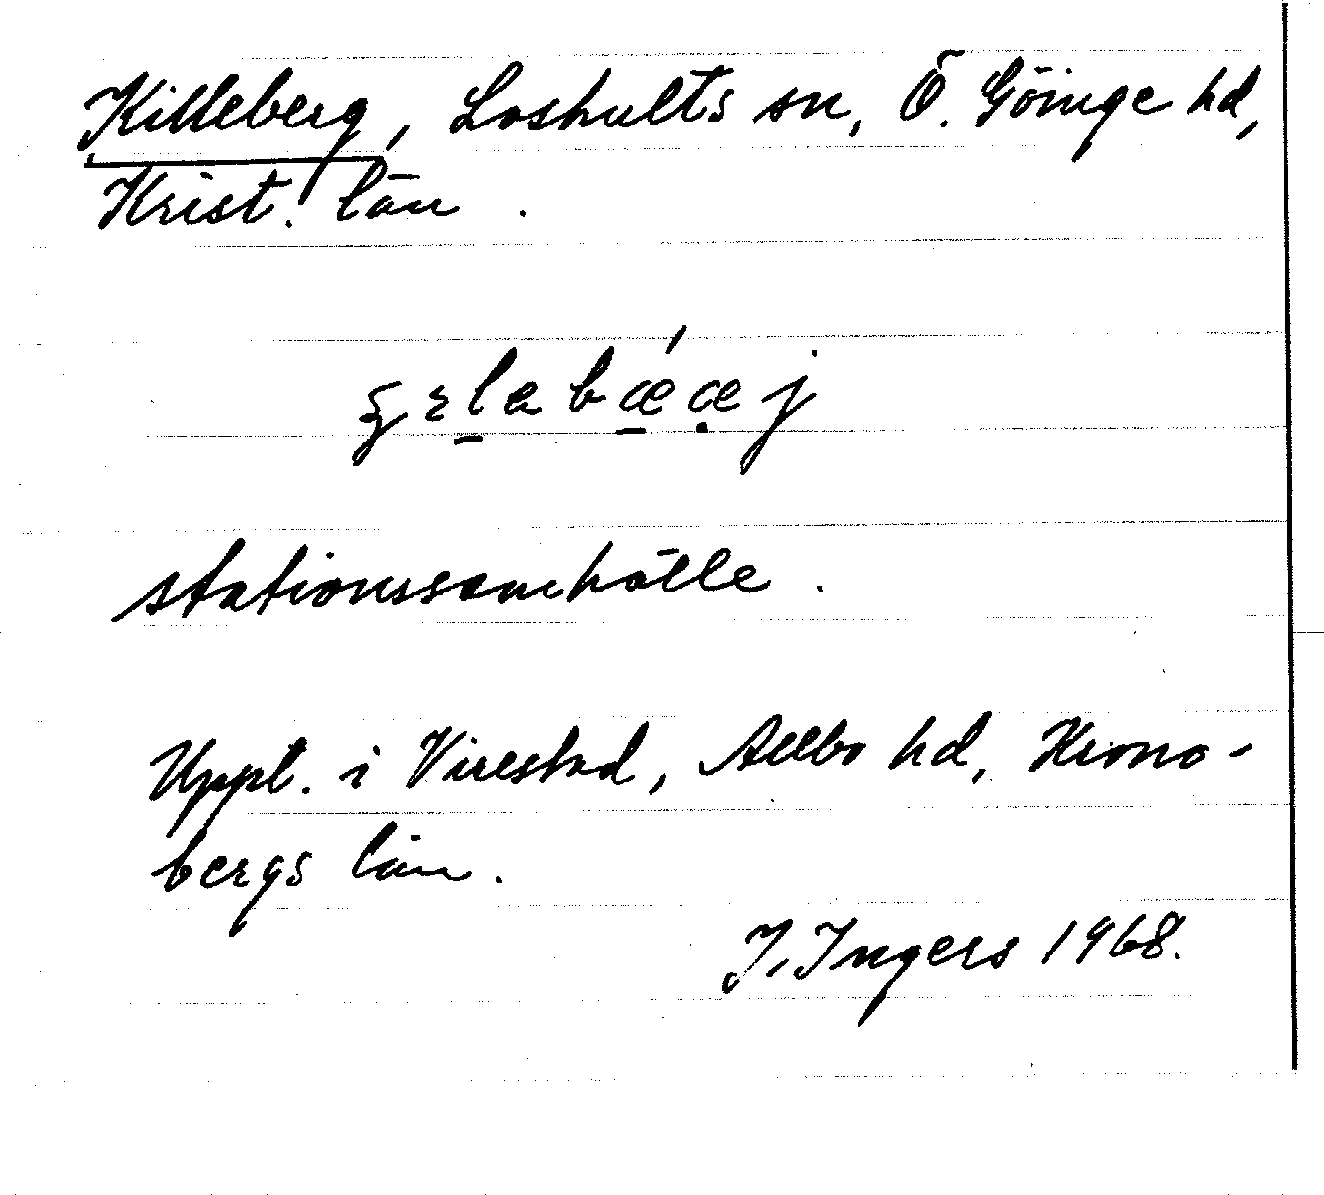 Killeberg, Loshults sn, Ö. Göinge hd,
Krist. län.
stationssamhälle.
Uppt. i Virestad, Allbo hd, Krono-
bergs län.
I. Ingers 1968.